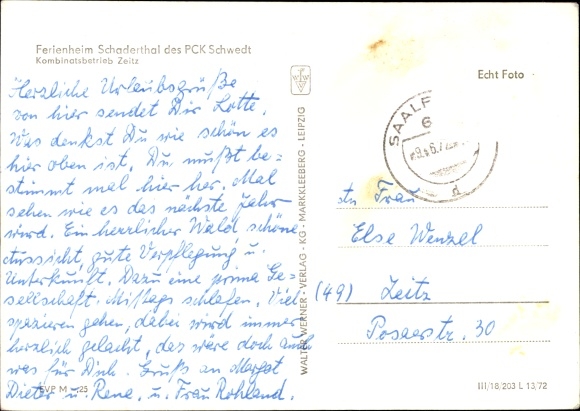 Ferienheim Schaderthal des PCK Schwedt
Kombinatsbetrieb Zeitz
Herzliche Urlaubsgrüße
von hier sendet Dir Lotte.
Was denkst Du wie schön es
hier oben ist. Du mußt be=
stimmt mal hier her. Mal
sehen wie es das nächste Jahr
wird. Ein herrlicher Wald, schöne
Aussicht, gute Verpflegung u.
Unterkunft. Dazu eine prima Ge=
sellschaft. Mittags schlafen. Viel
spazieren gehen, dabei wird immer
herzlich gelacht, das wäre doch auch
was für Dich. Gruß an Margot
Dieter u. Rene. u. Frau Rohland.
WALTER WERNER - VERLAG - KG - MARKKLEEBERG - LEIPZIG
Echt Foto
SAALF
An Frau
Else Wenzel
(49) Zeitz
Posaerstr. 30
III/18/203 L 13/72